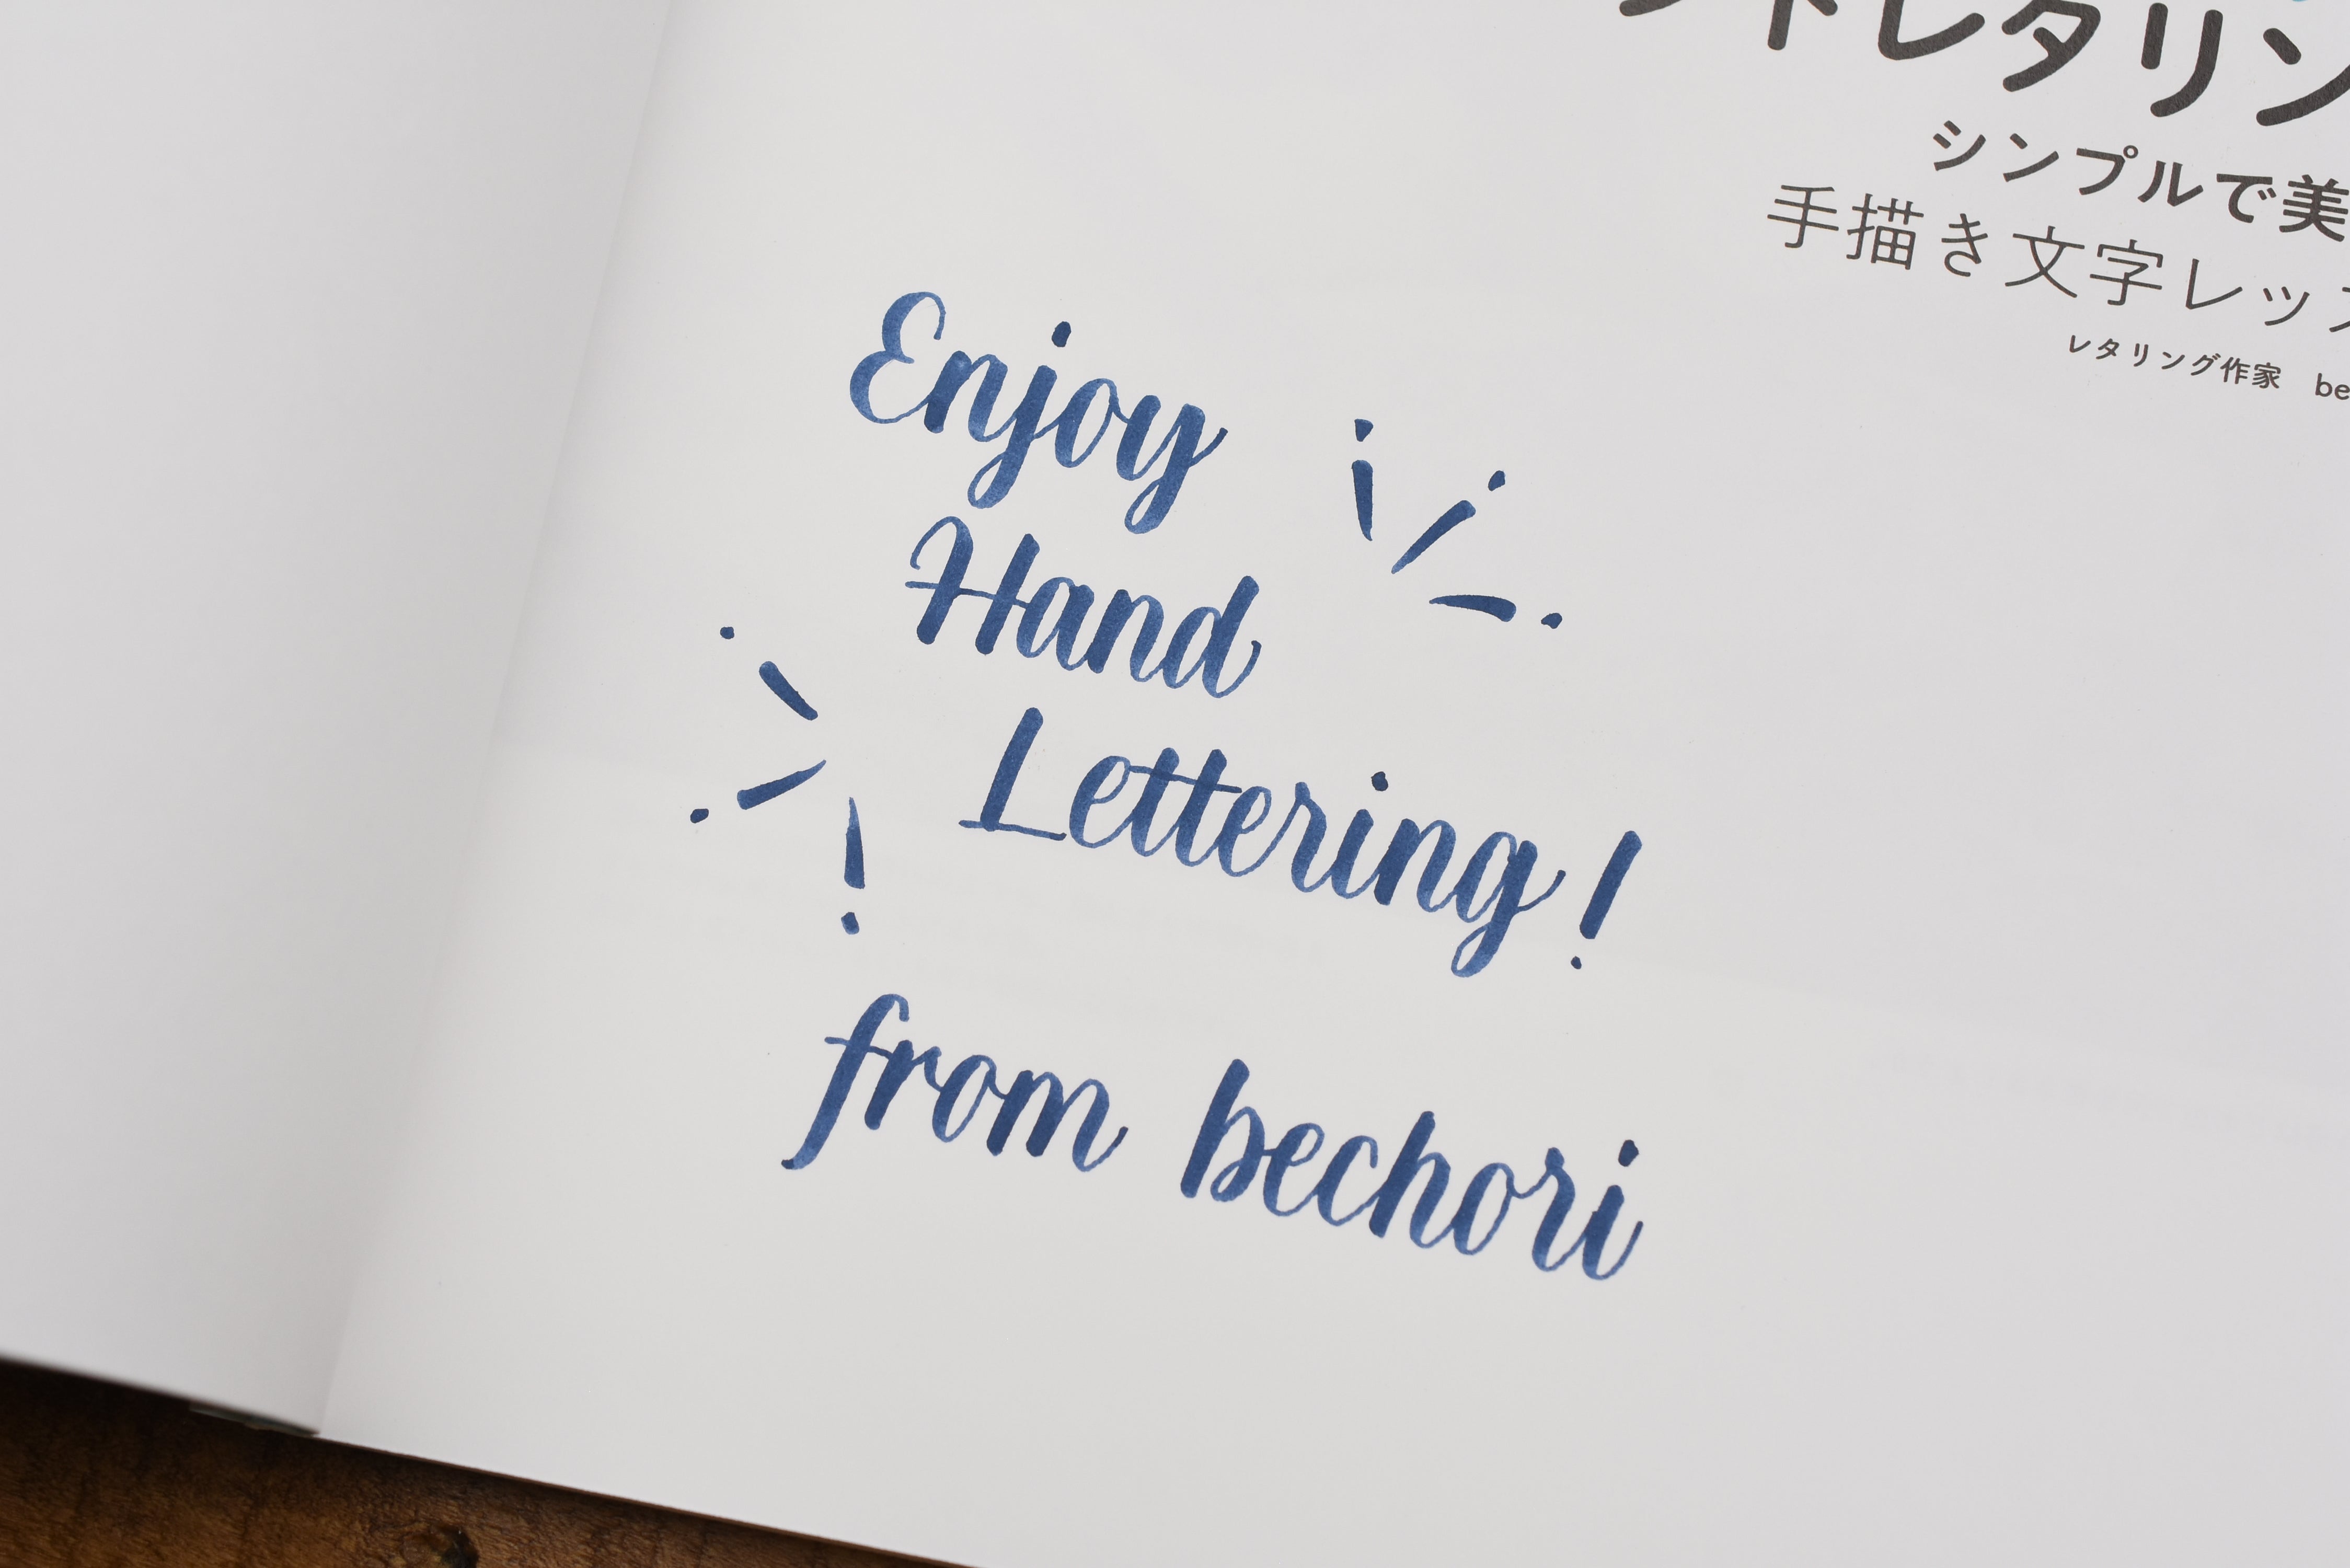 ンドレタリン
シンプルで美
手描き文字レッス
レタリング作家 be
Enjoy
Hand
Lettering!
from bechori